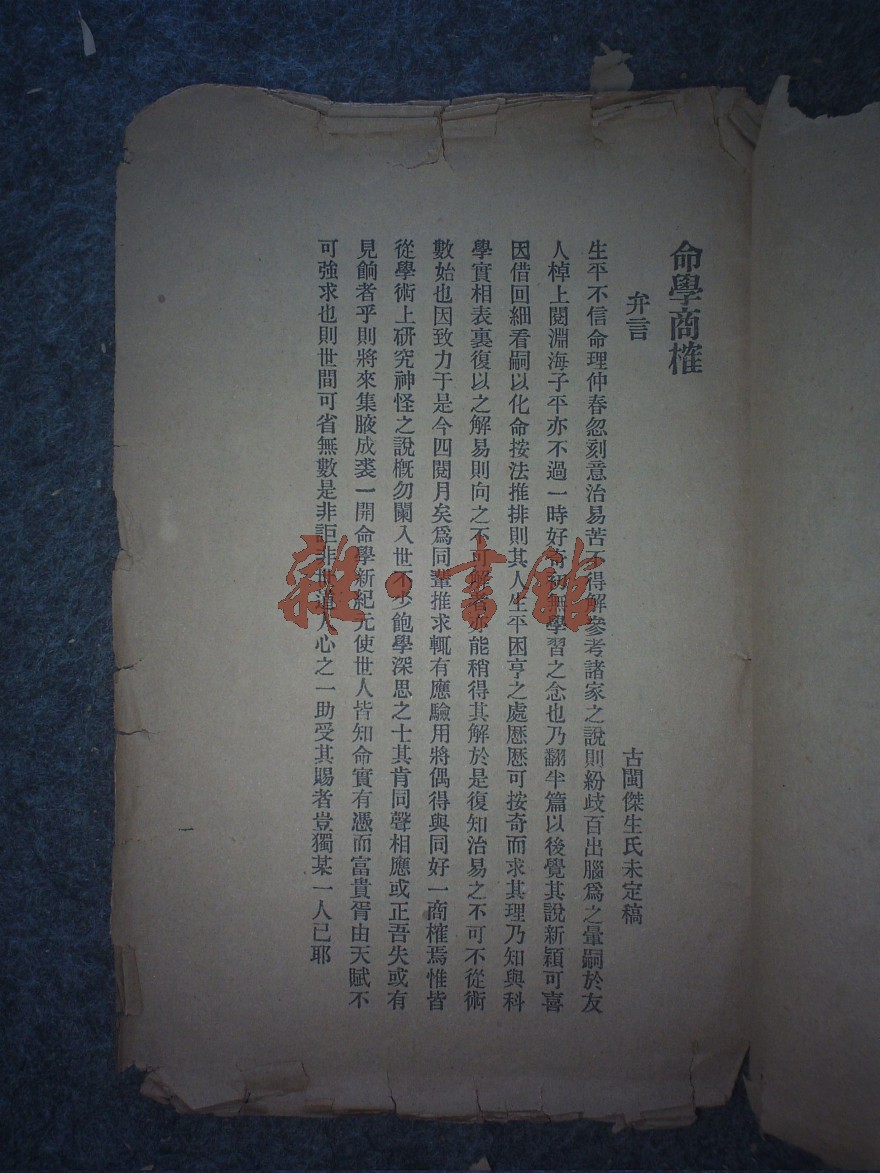 命學商榷
弁言
古閩傑生氏未定稿
生平不信命理仲春忽刻意治易苦不得解參考諸家之說則紛歧百出腦爲之暈嗣於友
人棹上閱淵海子平亦不過一時好奇初無學習之念也乃翻半篇以後覺其說新穎可喜
因借回細看嗣以化命按法推排則其人生平困亨之處歷歷可按奇而求其理乃知與科
學實相表裏復以之解易則向之不可解者亦能稍得其解於是復知治易之不可不從術
數始也因致力于是今四閱月矣爲同輩推求輒有應驗用將偶得與同好一商榷焉惟皆
從學術上研究神怪之說槪勿闌入世不少飽學深思之士其肯同聲相應或正吾失或有
見餉者乎則將來集腋成裘一開命學新紀元使世人皆知命實有憑而富貴胥由天賦不
可強求也則世間可省無數是非詎非世道人心之一助受其賜者豈獨某一人已耶
雜·書館